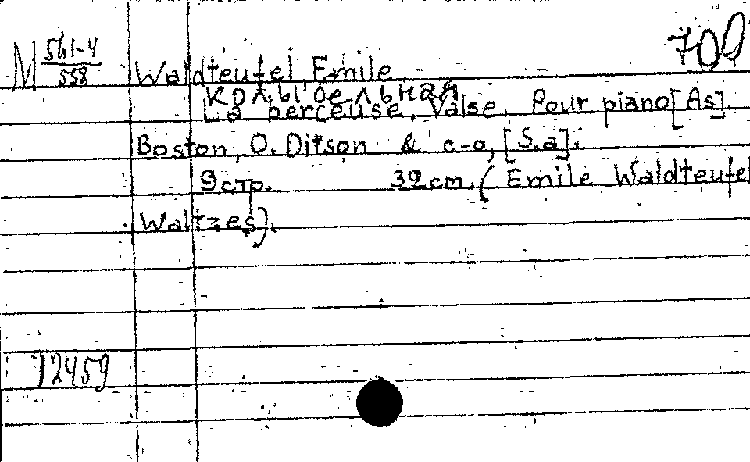 700
M 561-4/558
Waldteufel, Emile
Колыбельная
La berceuse. Valse. Pour piano [As].
Boston, O. Ditson & c-o, [S.a].
9 стр. 32 cm. (Emile Waldteufel
Waltzes).
72459